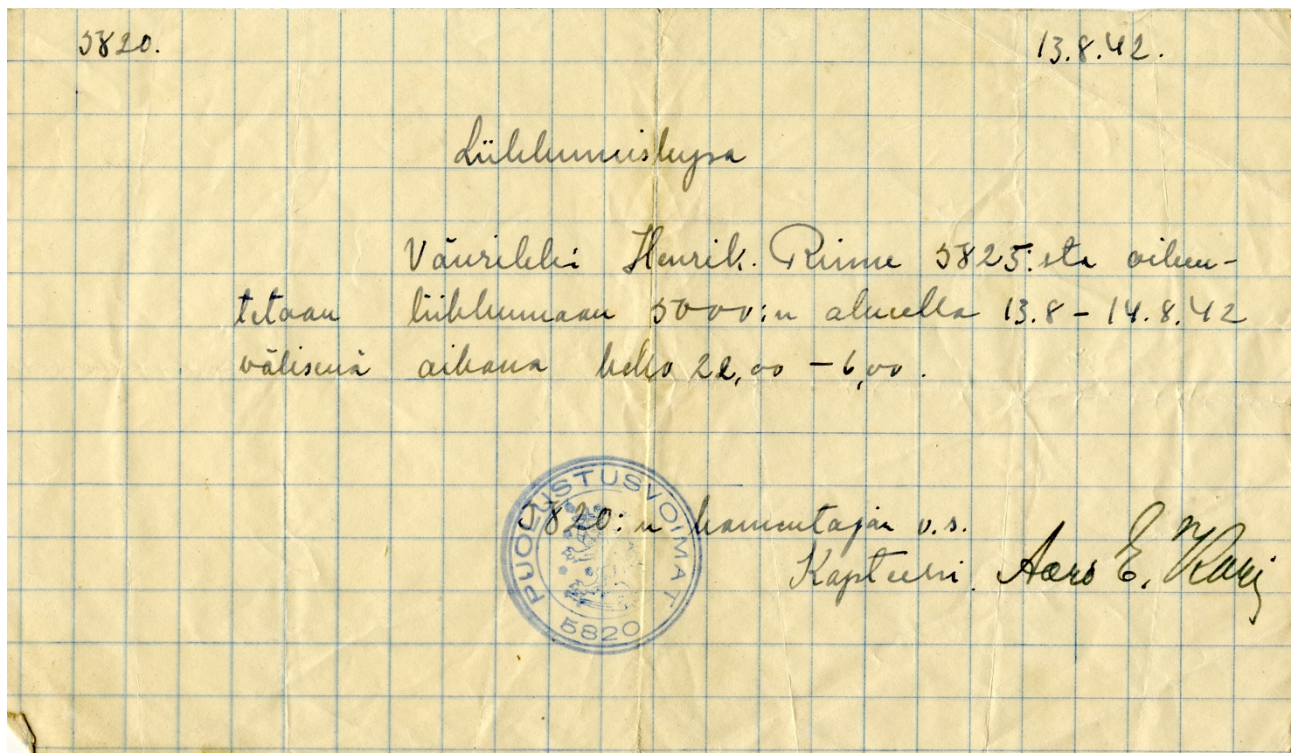 5820. 13.8.42.
Liikkumislupa
Vänrikki Henrik. Rinne 5825:sta oikeu-
tetaan liikkumaan 5000:n alueella 13.8 – 14.8.42
välisenä aikana kello 22,00 – 6,00.
PUOLUSTUSVOIMAT
5820
5820:n komentajan v.s.
Kapteeni. Aaro E. Kari